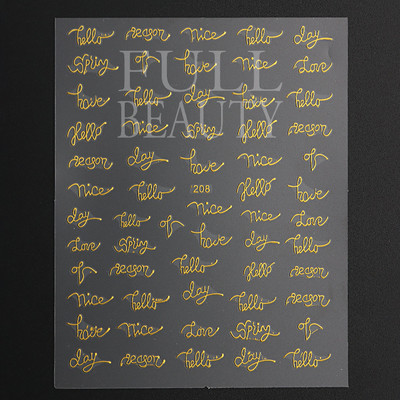 hello season Nice hello day
Spring of have Nice Love
FULL
have hello day have hello
BEAUTY
Hello Nice Spring Hello season
season day have Nice of
Nice hello 208 Hello have
day hello of Nice Nice Love
Love Spring have day hello
of season hello Hello season
Nice hello day hello hello
have Nice Love Spring of
day season hello day hello